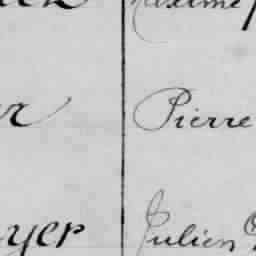 Maxime
er Pierre
yer Julien